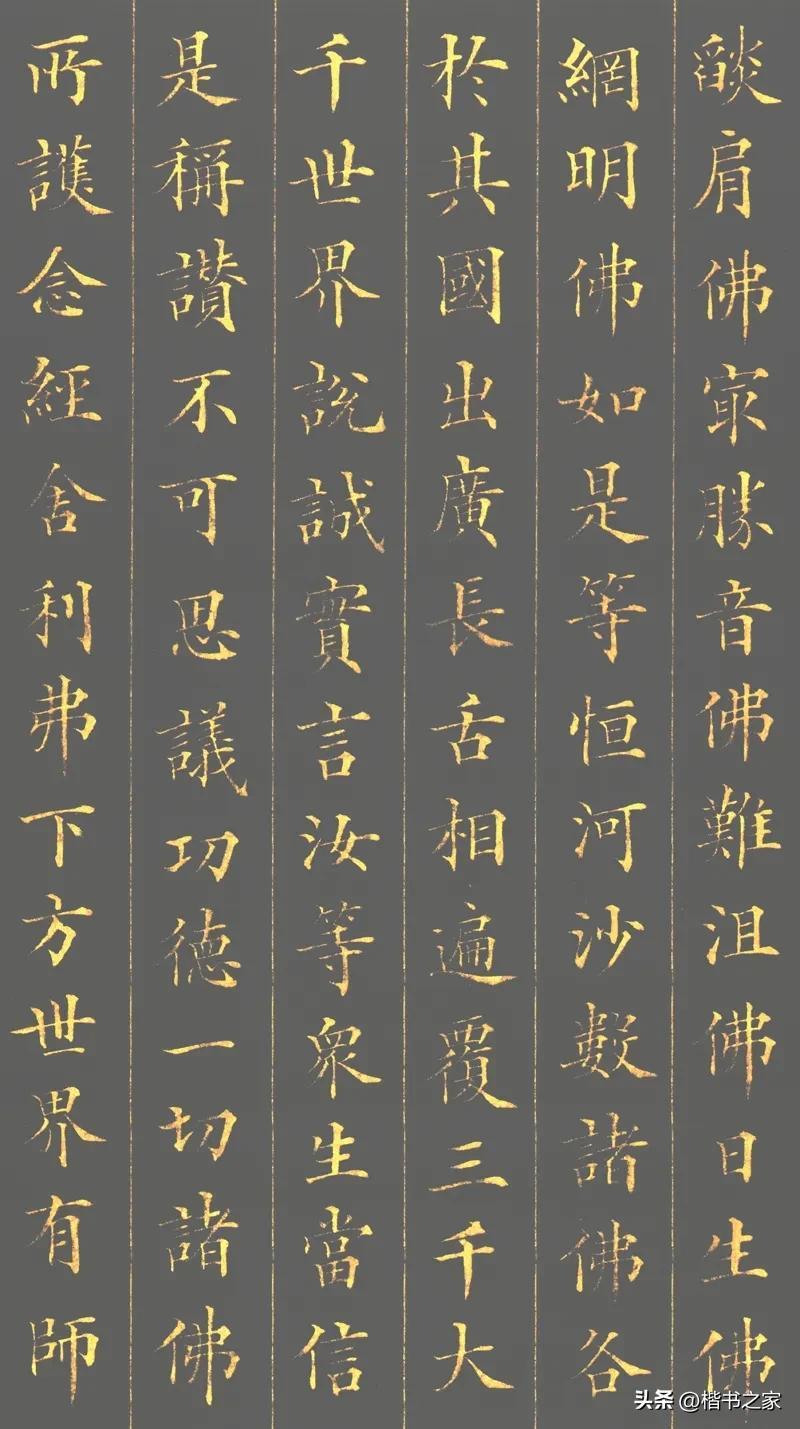 燄肩佛㝡勝音佛難沮佛日生佛
網明佛如是等恒河沙數諸佛各
於其國出廣長舌相遍覆三千大
千世界說誠實言汝等衆生當信
是稱讚不可思議功德一切諸佛
所護念經舍利弗下方世界有師
头条 @楷书之家